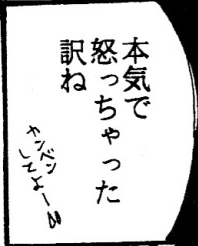 本気で
怒っちゃった
訳ね
カンベン
してよー